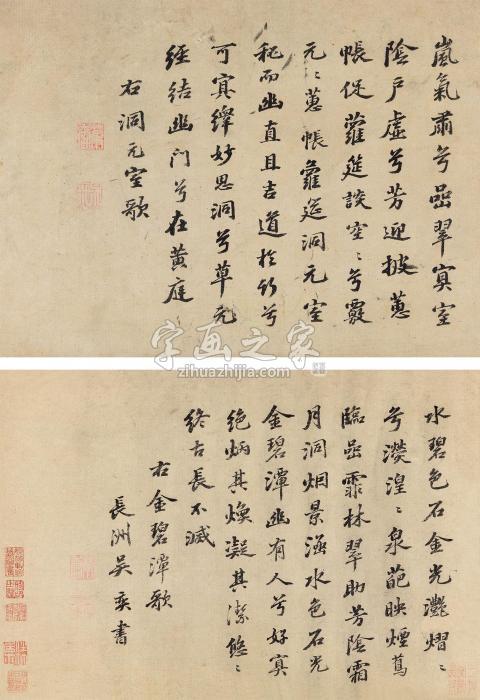 嵐氣肅兮嵒翠冥室
陰戶虛兮芳迎披蕙
帳促蘿筵談空〻兮覈
元〻蕙帳蘿筵洞元室
秘而幽直且吉道於竹兮
可冥繹妙思洞兮草元
經結幽门兮在黃庭
右洞元室歌
字画之家
zihuazhijia.com
水碧色石金光灔熠〻
兮濙湟〻泉葩映煙蔦
臨嵒霏林翠助芳陰霜
月洞烟景涵水色石光
金碧潭幽有人兮好冥
絕炳其煥凝其潔悠〻
終古長不滅
右金碧潭歌
長洲吳奕書